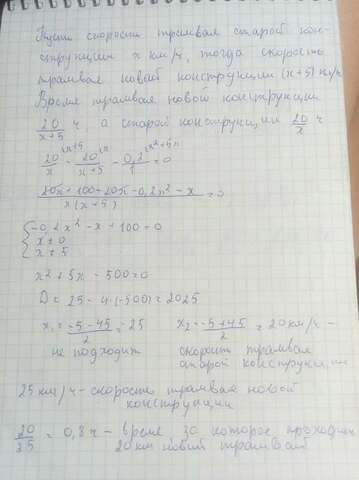 Пусть скорость трамвая старой кон-
струкции x км/ч, тогда скорость
трамвая новой конструкции (x+5) км/ч
Время трамвая новой конструкции
20/(x+5) ч, а старой конструкции 20/x ч
20/x - 20/(x+5) - 0,2/1 = 0
(20x + 100 - 20x - 0,2x² - x)/(x(x+5)) = 0
-0,2x² - x + 100 = 0
x ≠ 0
x ≠ 5
x² + 5x - 500 = 0
D = 25 - 4·(-500) = 2025
x₁ = (-5-45)/2 = -25 x₂ = (-5+45)/2 = 20 км/ч -
не подходит скорость трамвая
старой конструкции
25 км/ч - скорость трамвая новой
конструкции
20/25 = 0,8 ч - время за которое проходит
20 км новый трамвай